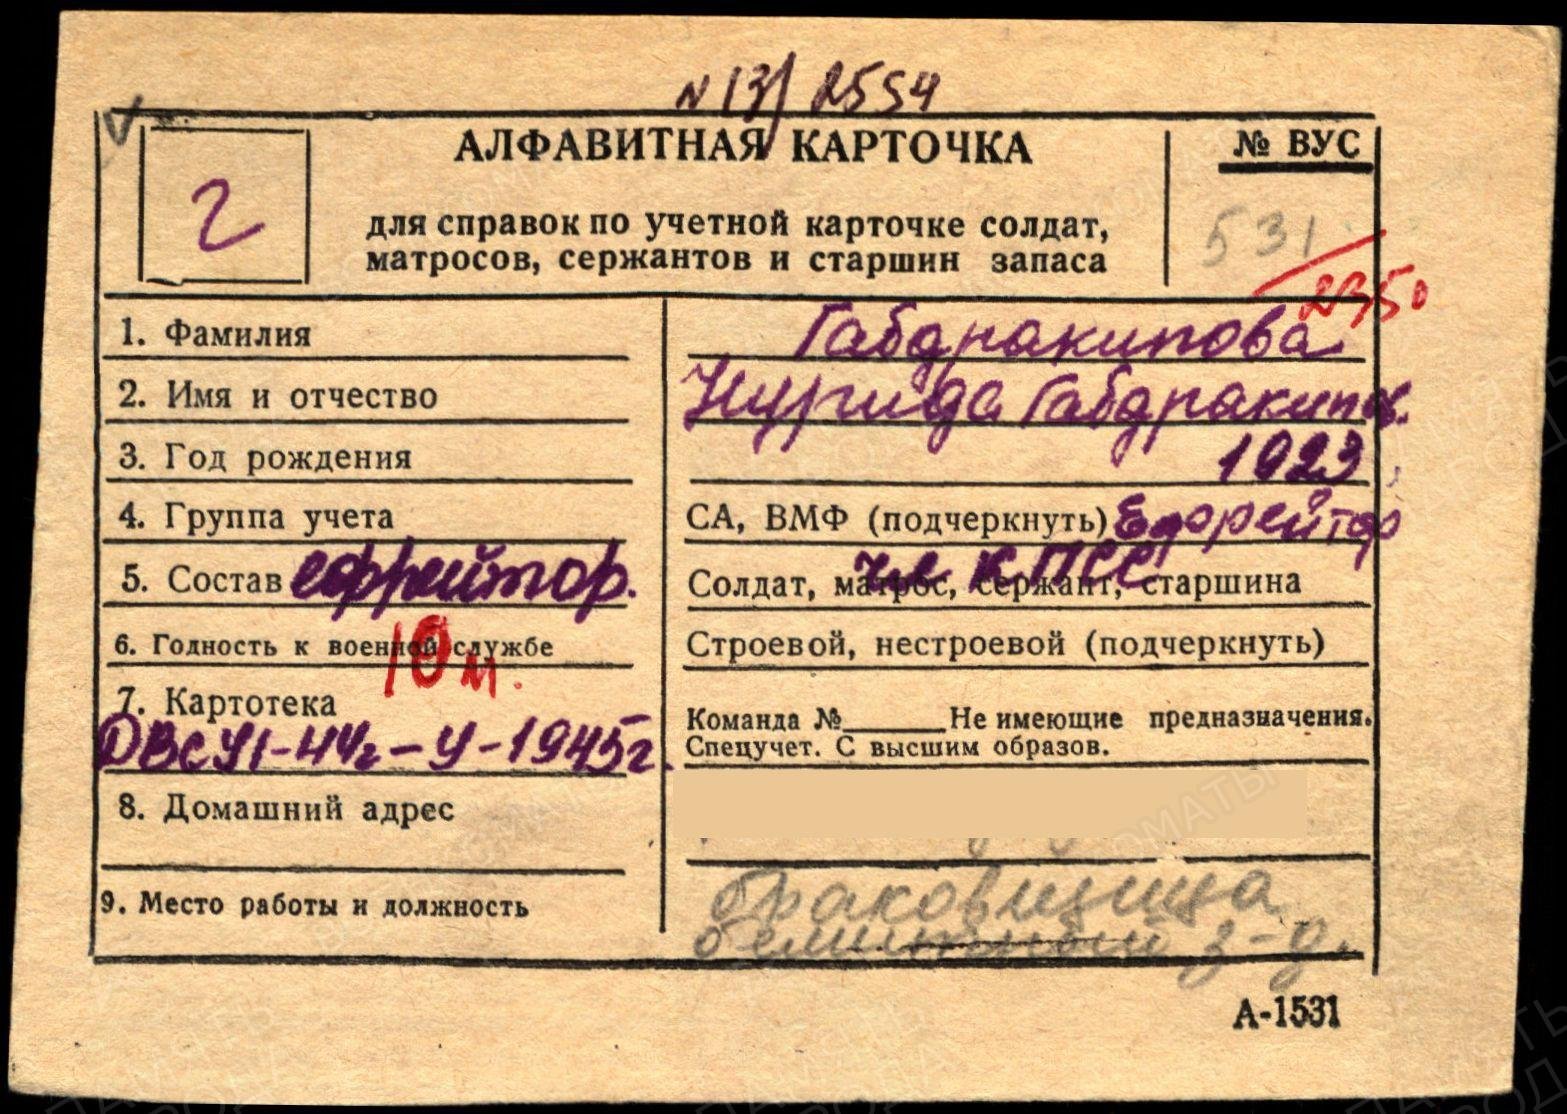 N 13/2554
АЛФАВИТНАЯ КАРТОЧКА
№ ВУС
2
для справок по учетной карточке солдат,
матросов, сержантов и старшин запаса
531
2350
1. Фамилия
Габдракипова
2. Имя и отчество
Нурида Габдракипов.
3. Год рождения
1923
4. Группа учета
СА, ВМФ (подчеркнуть) Ефрейтор
5. Состав ефрейтор.
чл КПСС
Солдат, матрос, сержант, старшина
6. Годность к военной службе
Строевой, нестроевой (подчеркнуть)
10 м.
7. Картотека
Команда №______Не имеющие предназначения.
Спецучет. С высшим образов.
-44г-V-1945г.
8. Домашний адрес
9. Место работы и должность
браковщица
з-д.
А-1531